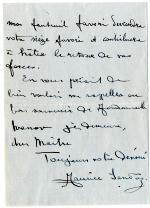 mon fauteuil favori devienne
votre siège favori et contribuera
à hâter le retour de vos
forces.
En vous priant de
bien vouloir me rappeler au
bon souvenir de Mademoiselle
je demeure,
cher Maître
Toujours votre dévoué
Maurice